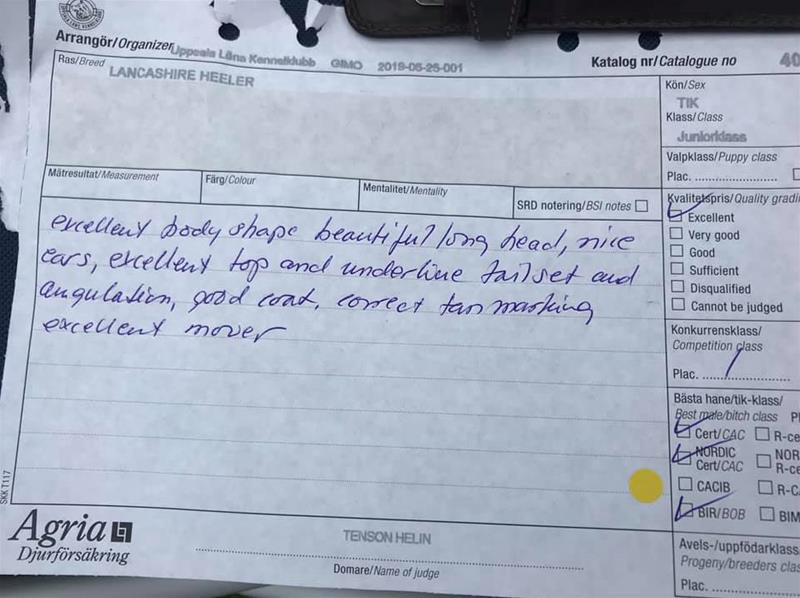 Arrangör/Organizer Uppsala Läns Kennelklubb GIMO 2019-05-25-001
Katalog nr/Catalogue no 40
Ras/Breed LANCASHIRE HEELER
Kön/Sex
TIK
Klass/Class
Juniorklass
Valpklass/Puppy class
Plac.
Mätresultat/Measurement
Färg/Colour
Mentalitet/Mentality
SRD notering/BSI notes
Kvalitetspris/Quality gradi
Excellent
Very good
Good
Sufficient
Disqualified
Cannot be judged
excellent body shape beautiful long head, nice
ears, excellent top and underline tailset and
angulation, good coat, correct tan marking
excellent mover
Konkurrensklass/
Competition class
Plac. 1
Bästa hane/tik-klass/
Best male/bitch class Pl
Cert/CAC R-ce
NORDIC NOR
Cert/CAC R-ce
CACIB R-C
BIR/BOB BIM
Avels-/uppfödarklass
Progeny/breeders clas
Plac.
SKK T117
Agria
Djurförsäkring
TENSON HELIN
Domare/Name of judge